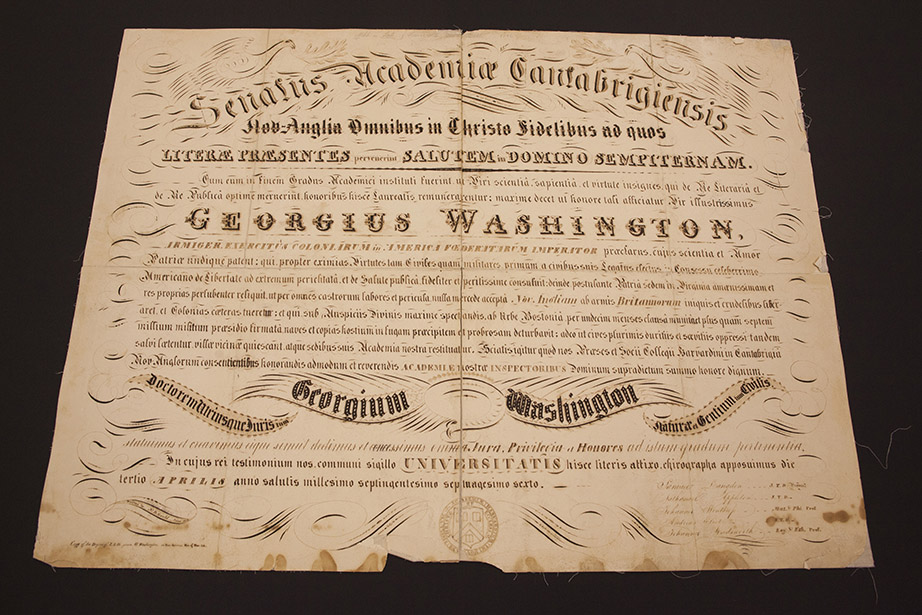 Senatus Academiæ Cantabrigiensis
Nov-Anglia Omnibus in Christo Fidelibus ad quos
LITERÆ PRÆSENTES pervenerint SALUTEM in DOMINO SEMPITERNAM.
Cum eum in finem Gradus Academici instituti fuerint ut Viri scientiâ, sapientiâ, et virtute insignes, qui de Re Literariâ et
de Re Publicâ optime meruerint, honoribus hisce Laureatis remunerarentur; maxime decet ut honore tali afficiatur Vir illustrissimus
GEORGIUS WASHINGTON,
ARMIGER, EXERCITUS COLONIARUM in AMERICA FŒDERATARUM IMPERATOR præclarus, cujus scientia et Amor
Patriæ undique patent; qui, propter eximias Virtutes tam Civiles quam militares, primum a civibus suis Legatus electus in Consessu celeberrimo
Americano de Libertate ad extremum periclitatâ et de Salute publicâ fideliter et peritissime consuluit; deinde postulante Patriâ sedem in Virginia amænissimam et
res proprias perlubenter reliquit, ut per omnes castrorum labores et pericula, nulla mercede accepta Nov-Angliam ab armis Britannorum iniquis et crudelibus liber-
aret, et Colonias cæteras tueretur; et qui, sub Auspiciis Divinis maxime spectandis, ab Urbe Bostoniâ per undecim menses clausa munita et plus quam septem
millium militum præsidio firmatâ naves et copias hostium in fugam præcipitem et probrosam deturbavit; adeo ut cives plurimis duritiis et sævitiis oppressi tandem
salvi lætentur, villæ vicinæ quiescant, atque sedibus suis Academia nostra restituatur. Sciatis igitur quod nos Præses et Socii Collegii Harvardini in Cantabrigiâ
Nov Anglorum consentientibus honorandis admodum et reverendis ACADEMIÆ nostræ INSPECTORIBUS Dominum supradictum summo honore dignum,
Georgium Washington
Doctorem Utriusque Juris tum Naturæ et Gentium tum Civilis
statuimus et creavimus eique simul dedimus et concessimus omnia Jura, Privilegia et Honores ad istum gradum pertinentia.
In cujus rei testimonium nos, communi sigillo UNIVERSITATIS hisce literis affixo, chirographa apposuimus die
tertio APRILIS anno salutis millesimo septingentesimo septuagesimo sexto.
Samuel Langdon